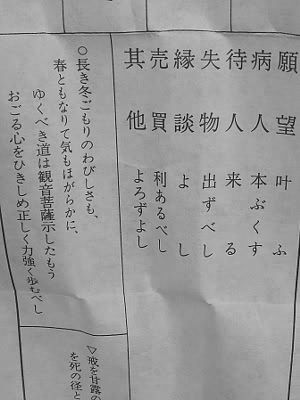 願望 叶ふ
病人 本ぶくす
待人 来る
失物 出ずべし
縁談 よし
売買 利あるべし
其他 よろずよし
○長き冬ごもりのわびしさも、
春ともなりて気もほがらかに、
ゆくべき道は観音菩薩示したもう
おごる心をひきしめ正しく力強く歩むべし
▽戒を甘露の
を死の径と